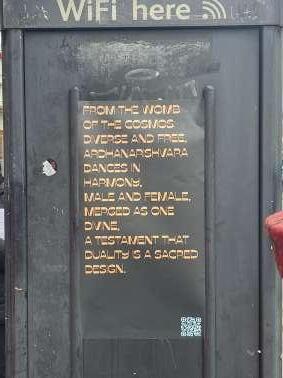 WiFi here
FROM THE WOMB
OF THE COSMOS
DIVERSE AND FREE,
ARDHANARISHVARA
DANCES IN
HARMONY,
MALE AND FEMALE,
MERGED AS ONE
DIVINE,
A TESTAMENT THAT
DUALITY IS A SACRED
DESIGN.